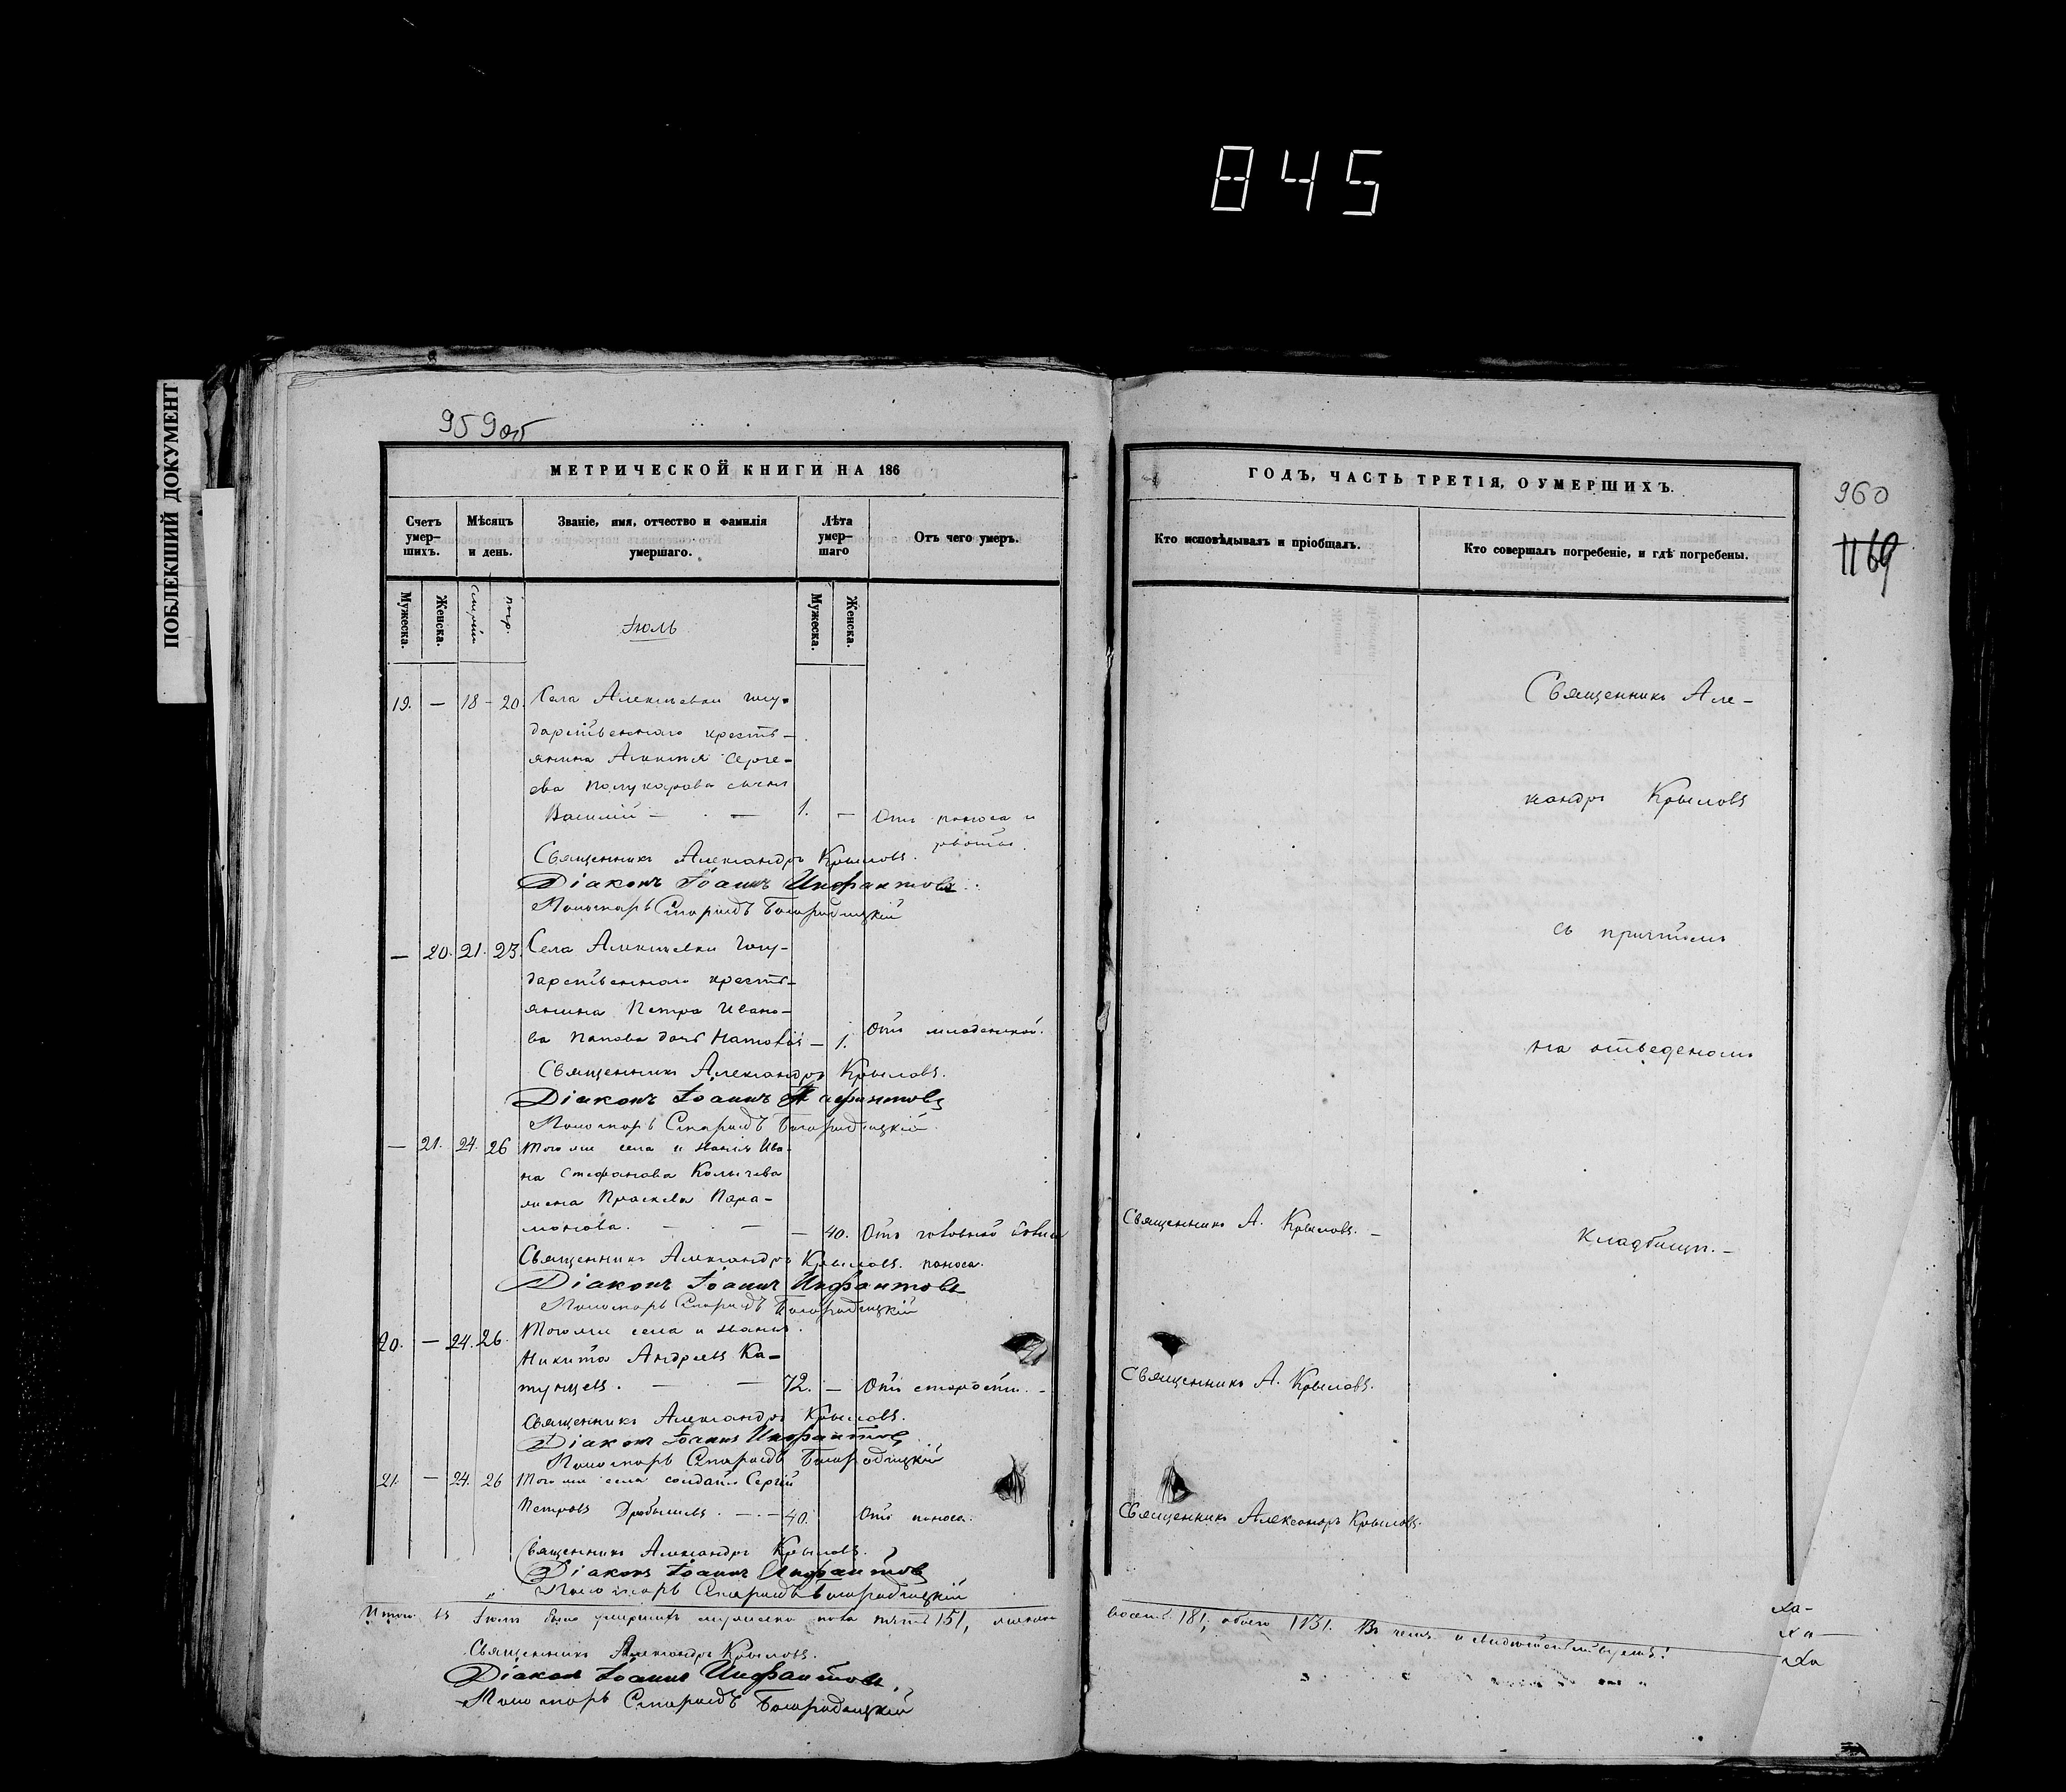 845
ПОБЛЕКШИЙ ДОКУМЕНТ
959 об
МЕТРИЧЕСКОЙ КНИГИ НА 186
Счетъ умер-шихъ.
Мѣсяцъ и день.
Званіе, имя, отчество и фамилія умершаго.
Лѣта умер-шаго
Отъ чего умеръ.
Мужеска.
Женска.
погр.
Іюль
Мужеска.
Женска.
19. — 18 - 20. Села Алексѣевки госу-
дарственнаго кресть-
янина Алексѣя Серге-
ева Полукарова сынъ
Василій — — 1. — Отъ поноса и
рвоты.
Священникъ Александръ Крыловъ.
Діаконъ Іоаннъ Инфантовъ
Пономарь Спиридъ Богородицкій
— 20. 21. 23. Села Алексѣевки госу-
дарственнаго кресть-
янина Петра Ивано-
ва Попова дочь Наталія — 1. Отъ младенской.
Священникъ Александръ Крыловъ.
Діаконъ Іоаннъ Инфантовъ
Пономарь Спиридъ Богородицкій
— 21. 24. 26 Того же села и званія Ива-
на Стефанова Колычева
жена Праскева Пара-
монова. — — — 40. Отъ головной боли и
Священникъ Александръ Крыловъ. поноса.
Діаконъ Іоаннъ Инфантовъ
Пономарь Спиридъ Богородицкій
20. — 24. 26. Того же села и званія
Никита Андреевъ Ка-
тунцевъ. — — 72. — Отъ старости. -
Священникъ Александръ Крыловъ.
Діаконъ Іоаннъ Инфантовъ
Пономарь Спиридъ Богородицкій
21. — 24. 26 Того же села солдатъ Сергій
Петровъ — 40. Отъ поноса.
Священникъ Александръ Крыловъ.
Діаконъ Іоаннъ Инфантовъ
Пономарь Спиридъ Богородицкій
Итого въ Іюлѣ было умершихъ мужеска пола
Священникъ Александръ Крыловъ.
Діаконъ Іоаннъ Инфантовъ.
Пономарь Спиридъ Богородицкій
ГОДЪ, ЧАСТЬ ТРЕТІЯ, О УМЕРШИХЪ.
960
1169
Кто исповѣдывалъ и пріобщалъ.
Кто совершалъ погребеніе, и гдѣ погребены.
Священникъ Але-
ксандръ Крыловъ
съ причтомъ
на отведеномъ
Священникъ А. Крыловъ. —
кладбищѣ. —
Священникъ А. Крыловъ.
Священникъ Александръ Крыловъ.